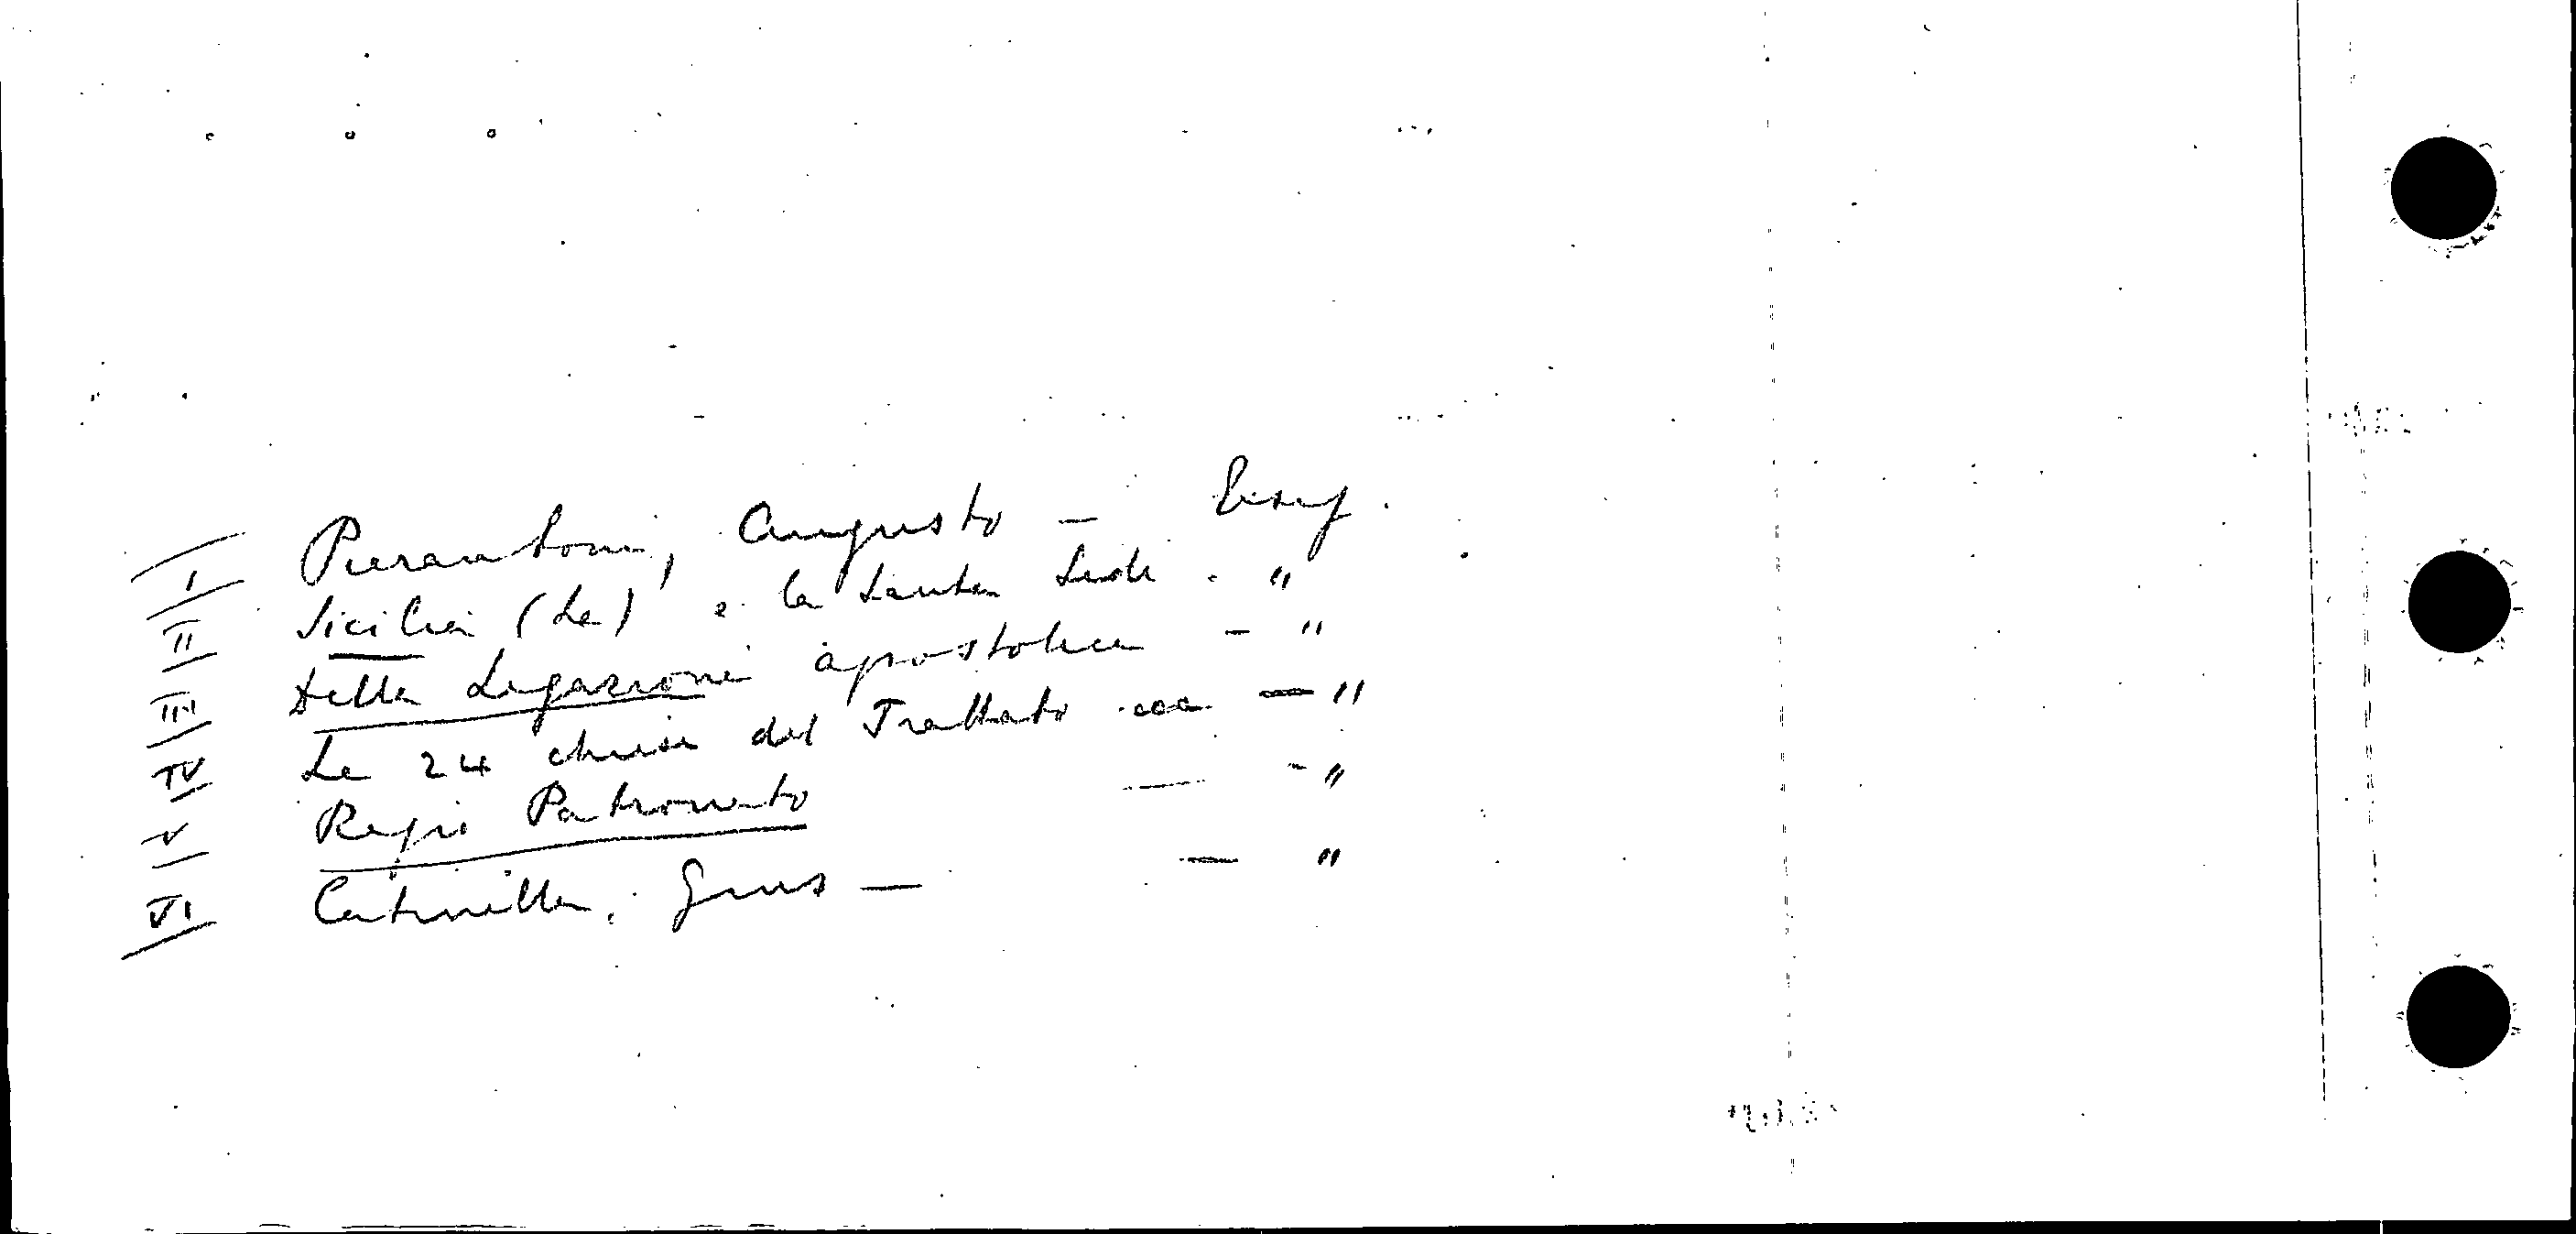 I Pierantoni, Augusto —
II Sicilia (La) e la Santa Sede . "
III Della Legazione apostolica – "
IV Le 24 chiese del Trattato ... — "
V Regio Patronato — – "
VI Catinella, — — "